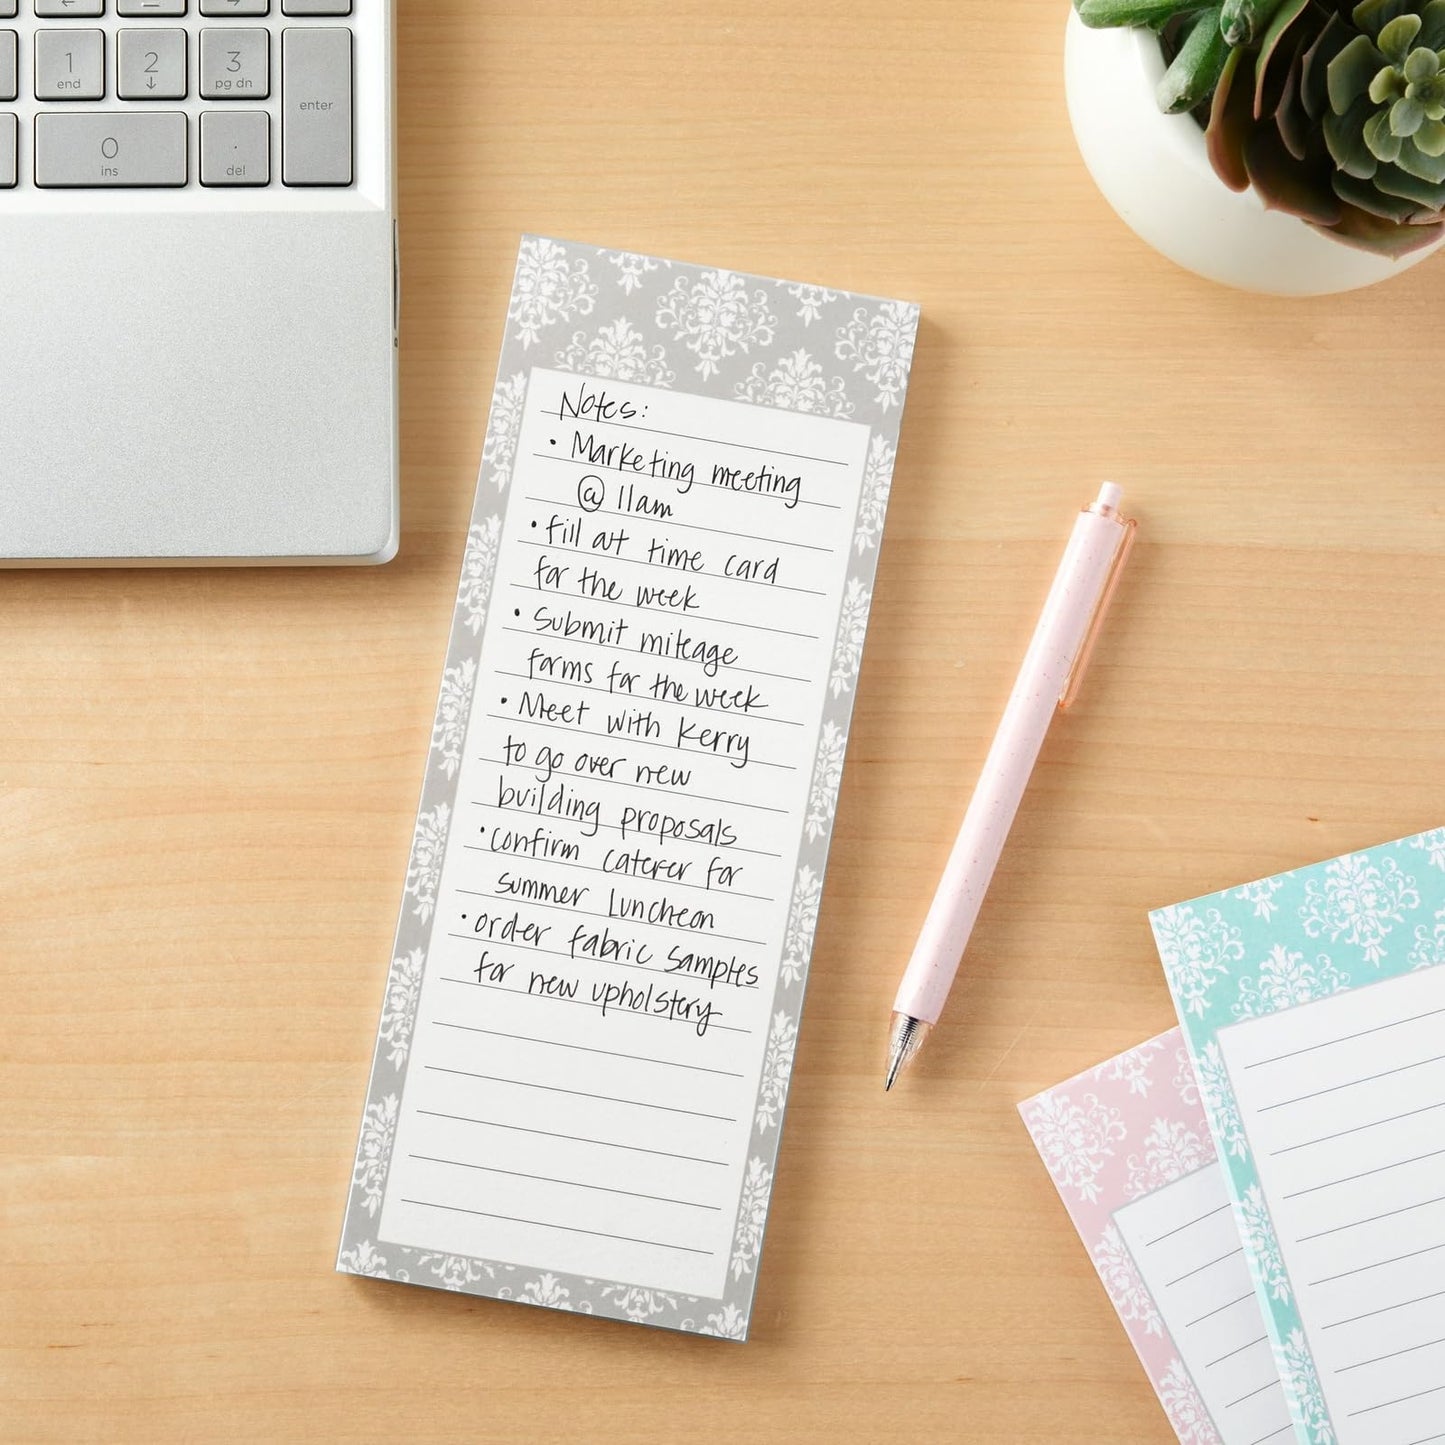 1
end
2
↓
3
pg dn
enter
0
ins
.
del
Notes:
• Marketing meeting
@ 11am
• fill out time card
for the week
• Submit mileage
forms for the week
• Meet with Kerry
to go over new
building proposals
• confirm caterer for
summer Luncheon
• order fabric samples
for new upholstery